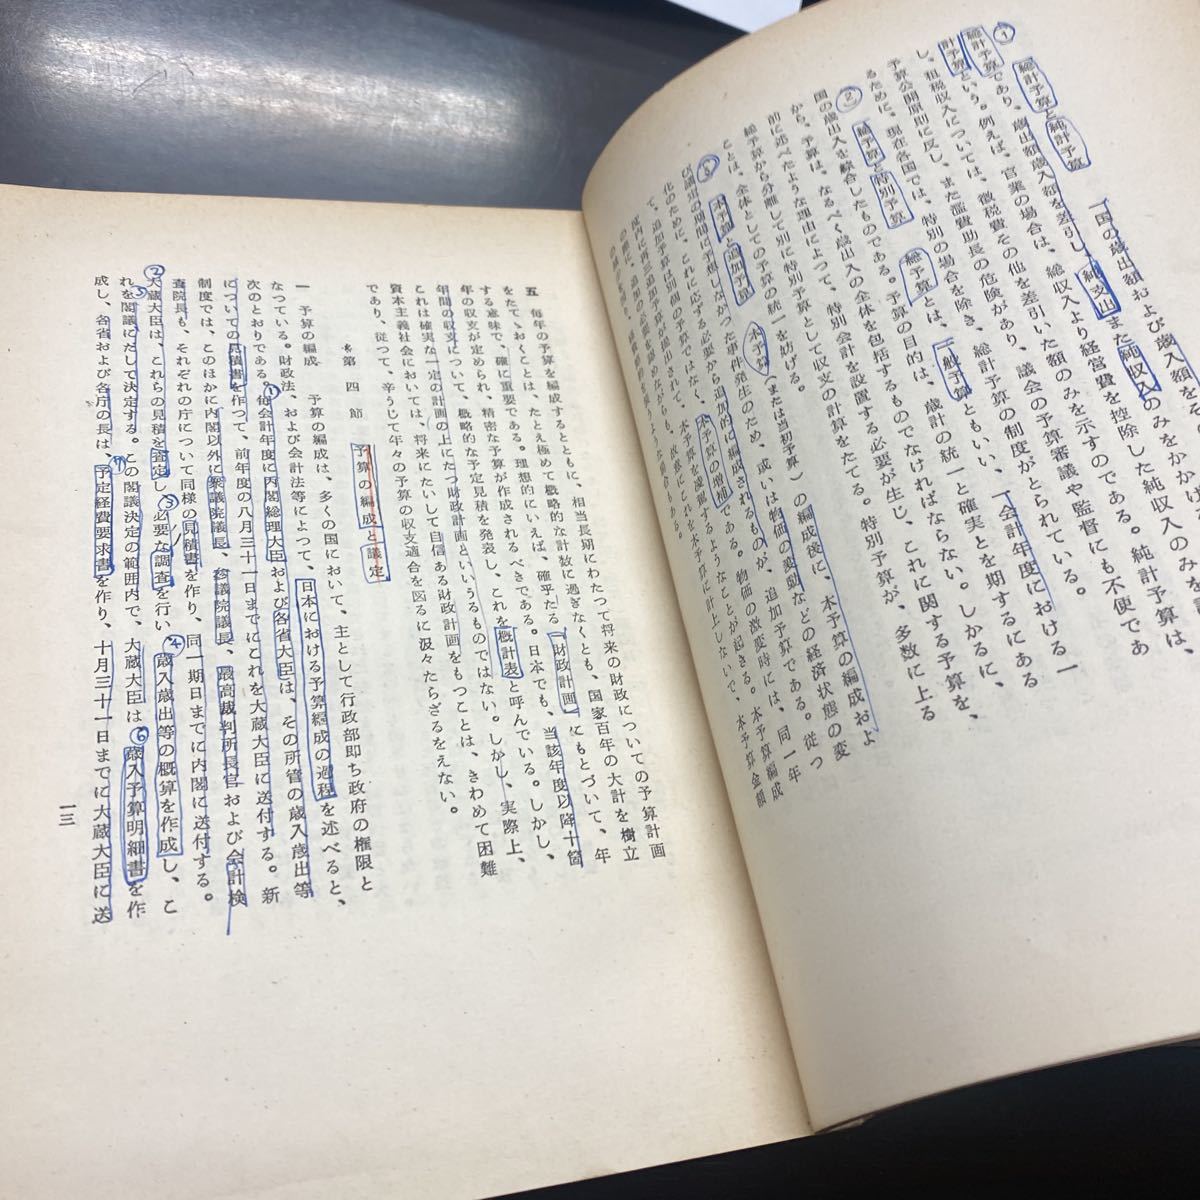 ① 総計予算と純計予算　一国の歳出額および歳入額をそ
総計予算であり、歳出額歳入額を差引し、純支出また純収入のみをかかげ
計予算という。例えば、官業の場合は、総収入より経営費を控除した純収入の
み、租税収入については、徴税費その他を差引いた額のみを示すのである。純計予算は、
予算公開原則に反し、また濫費助長の危険があり、議会の予算審議や監督にも不便であ
るために、現在各国では、特別の場合を除き、総計予算の制度がとられている。
② 総予算と特別予算　総予算とは、一般予算ともいい、一会計年度における一
国の歳出入を綜合したものである。予算の目的は、歳計の統一と確実とを期するにある
から、予算は、なるべく歳出入の全体を包括するものでなければならない。しかるに、
前に述べたような理由によつて、特別会計を設置する必要が生じ、これに関する予算を、
総予算から分離して別に特別予算として収支の計算をたてる。特別予算が、多数に上る
ことは、全体としての予算の統一を妨げる。
本予算と追加予算　本予算（または当初予算）の編成後に、本予算の編成およ
び議定の期間に予想しなかつた事件発生のため、或いは物価の変動などの経済状態の変
化のために、これに応ずる必要から追加的に編成されるものが、追加予算である。従つ
て、追加予算は別個の予算ではなく、本予算の増補である。物価の激変時には、同一年
度内に再三追加予算が提出されても、
五　毎年の予算を編成するとともに、相当長期にわたつて将来の財政についての予算計画
をたてゝおくことは、たとえ極めて概略的な計数に過ぎなくとも、国家百年の大計を樹立
する意味で、確に重要である。理想的にいえば、確乎たる財政計画にもとづいて、年
年の収支が定められ、精密な予算が作成されるべきである。日本でも、当該年度以降十箇
年間の収支について、概略的な予定見積を発表し、これを概計表と呼んでいる。しかし、
これは確実な一定の計画の上にたつ財政計画といいうるものではない。しかし、実際上、
資本主義社会においては、将来にたいして自信ある財政計画をもつことは、きわめて困難
であり、従つて、辛うじて年々の予算の収支適合を図るに汲々たらざるをえない。
第四節　予算の編成と議定
一　予算の編成　予算の編成は、多くの国において、主として行政部即ち政府の権限と
なつている。財政法、および会計法等によつて、日本における予算編成の過程を述べると、
次のとおりである。①毎会計年度に内閣総理大臣および各省大臣は、その所管の歳入歳出等
についての見積書を作つて、前年度の八月三十一日までにこれを大蔵大臣に送付する。新
制度では、このほかに内閣以外に衆議院議長、参議院議長、最高裁判所長官および会計検
査院長も、それぞれの庁について同様の見積書を作り、同一期日までに内閣に送付する。
②大蔵大臣は、これらの見積を査定し③必要な調査を行い④歳入歳出等の概算を作成し、こ
れを閣議にだして決定する。この閣議決定の範囲内で、大蔵大臣は⑥歳入予算明細書を作
成し、各省および各庁の長は、予定経費要求書を作り、十月三十一日までに大蔵大臣に送
一三